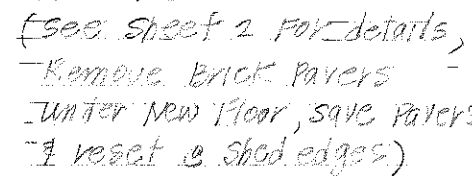 (see Sheet 2 For details,
Remove Brick Pavers
under New Floor, save Pavers
& reset @ Shed edges)